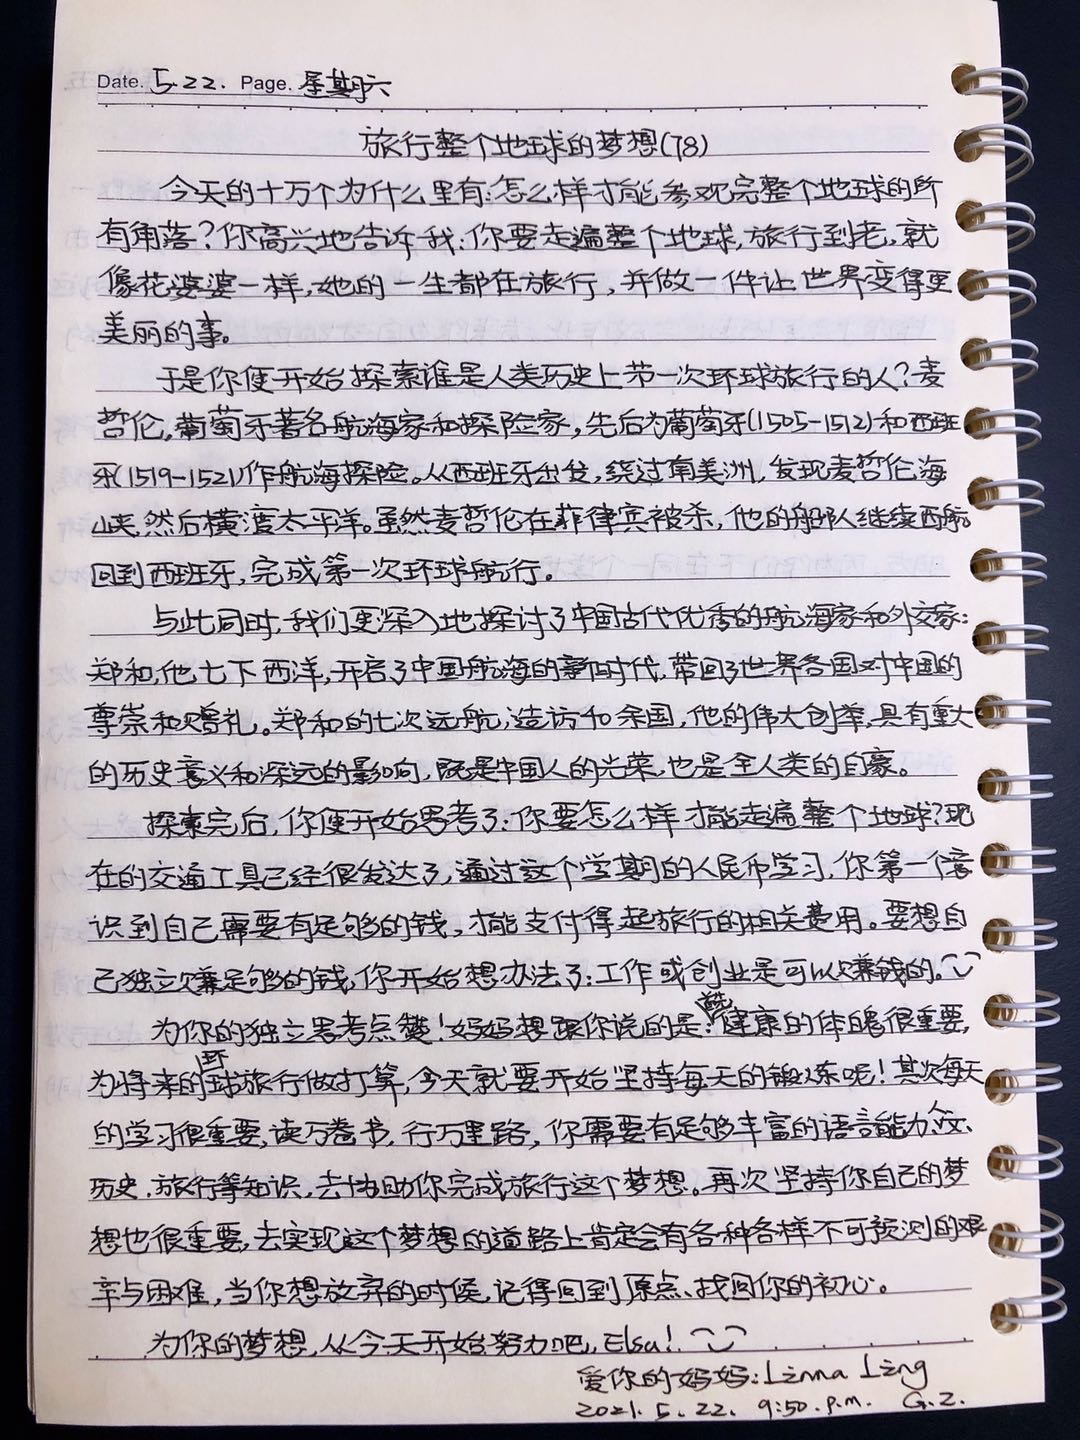 Date. 5.22. Page. 星期六
旅行整个地球的梦想(78)
今天的十万个为什么里有:怎么样才能参观完整个地球的所
有角落?你高兴地告诉我:你要走遍整个地球,旅行到老,就
像花婆婆一样,她的一生都在旅行,并做一件让世界变得更
美丽的事。
于是你便开始探索谁是人类历史上第一次环球旅行的人?麦
哲伦,葡萄牙著名航海家和探险家,先后为葡萄牙(1505-1512)和西班
牙(1519-1521)作航海探险。从西班牙出发,绕过南美洲,发现麦哲伦海
峡,然后横渡太平洋。虽然麦哲伦在菲律宾被杀,他的船队继续西航
回到西班牙,完成第一次环球航行。
与此同时,我们更深入地探讨了中国古代优秀的航海家和外交家:
郑和,他七下西洋,开启了中国航海的新时代,带回了世界各国对中国的
尊崇和赠礼。郑和的七次远航,造访30余国,他的伟大创举,具有重大
的历史意义和深远的影响,既是中国人的光荣,也是全人类的自豪。
探索完后,你便开始思考了:你要怎么样才能走遍整个地球?现
在的交通工具已经很发达了,通过这个学期的人民币学习,你第一个意
识到自己需要有足够的钱,才能支付得起旅行的相关费用。要想自
己独立赚足够的钱,你开始想办法了:工作或创业是可以赚钱的。
为你的独立思考点赞!妈妈想跟你说的是:首先健康的体魄很重要,
为将来的环球旅行做打算,今天就要开始坚持每天的锻炼呢!其次每天
的学习很重要,读万卷书,行万里路,你需要有足够丰富的语言能力、
历史、旅行等知识,去协助你完成旅行这个梦想。再次坚持你自己的梦
想也很重要,去实现这个梦想的道路上肯定会有各种各样不可预测的艰
辛与困难,当你想放弃的时候,记得回到原点、找回你的初心。
为你的梦想,从今天开始努力吧,Elsa!
爱你的妈妈:Linna Ling
2021.5.22. 9:50.p.m. G.Z.